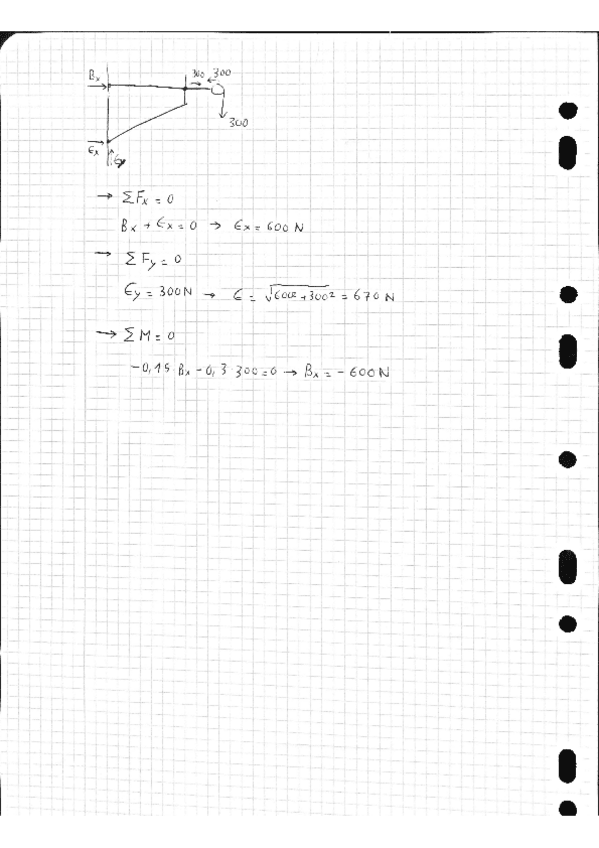 Bx
300 300
300
Ex
Ey
→ ΣFx = 0
Bx + Ex = 0 → Ex = 600 N
→ ΣFy = 0
Ey = 300 N → E = √600² + 300² = 670 N
→ ΣM = 0
-0,15 Bx - 0,3 300 = 0 → Bx = - 600 N